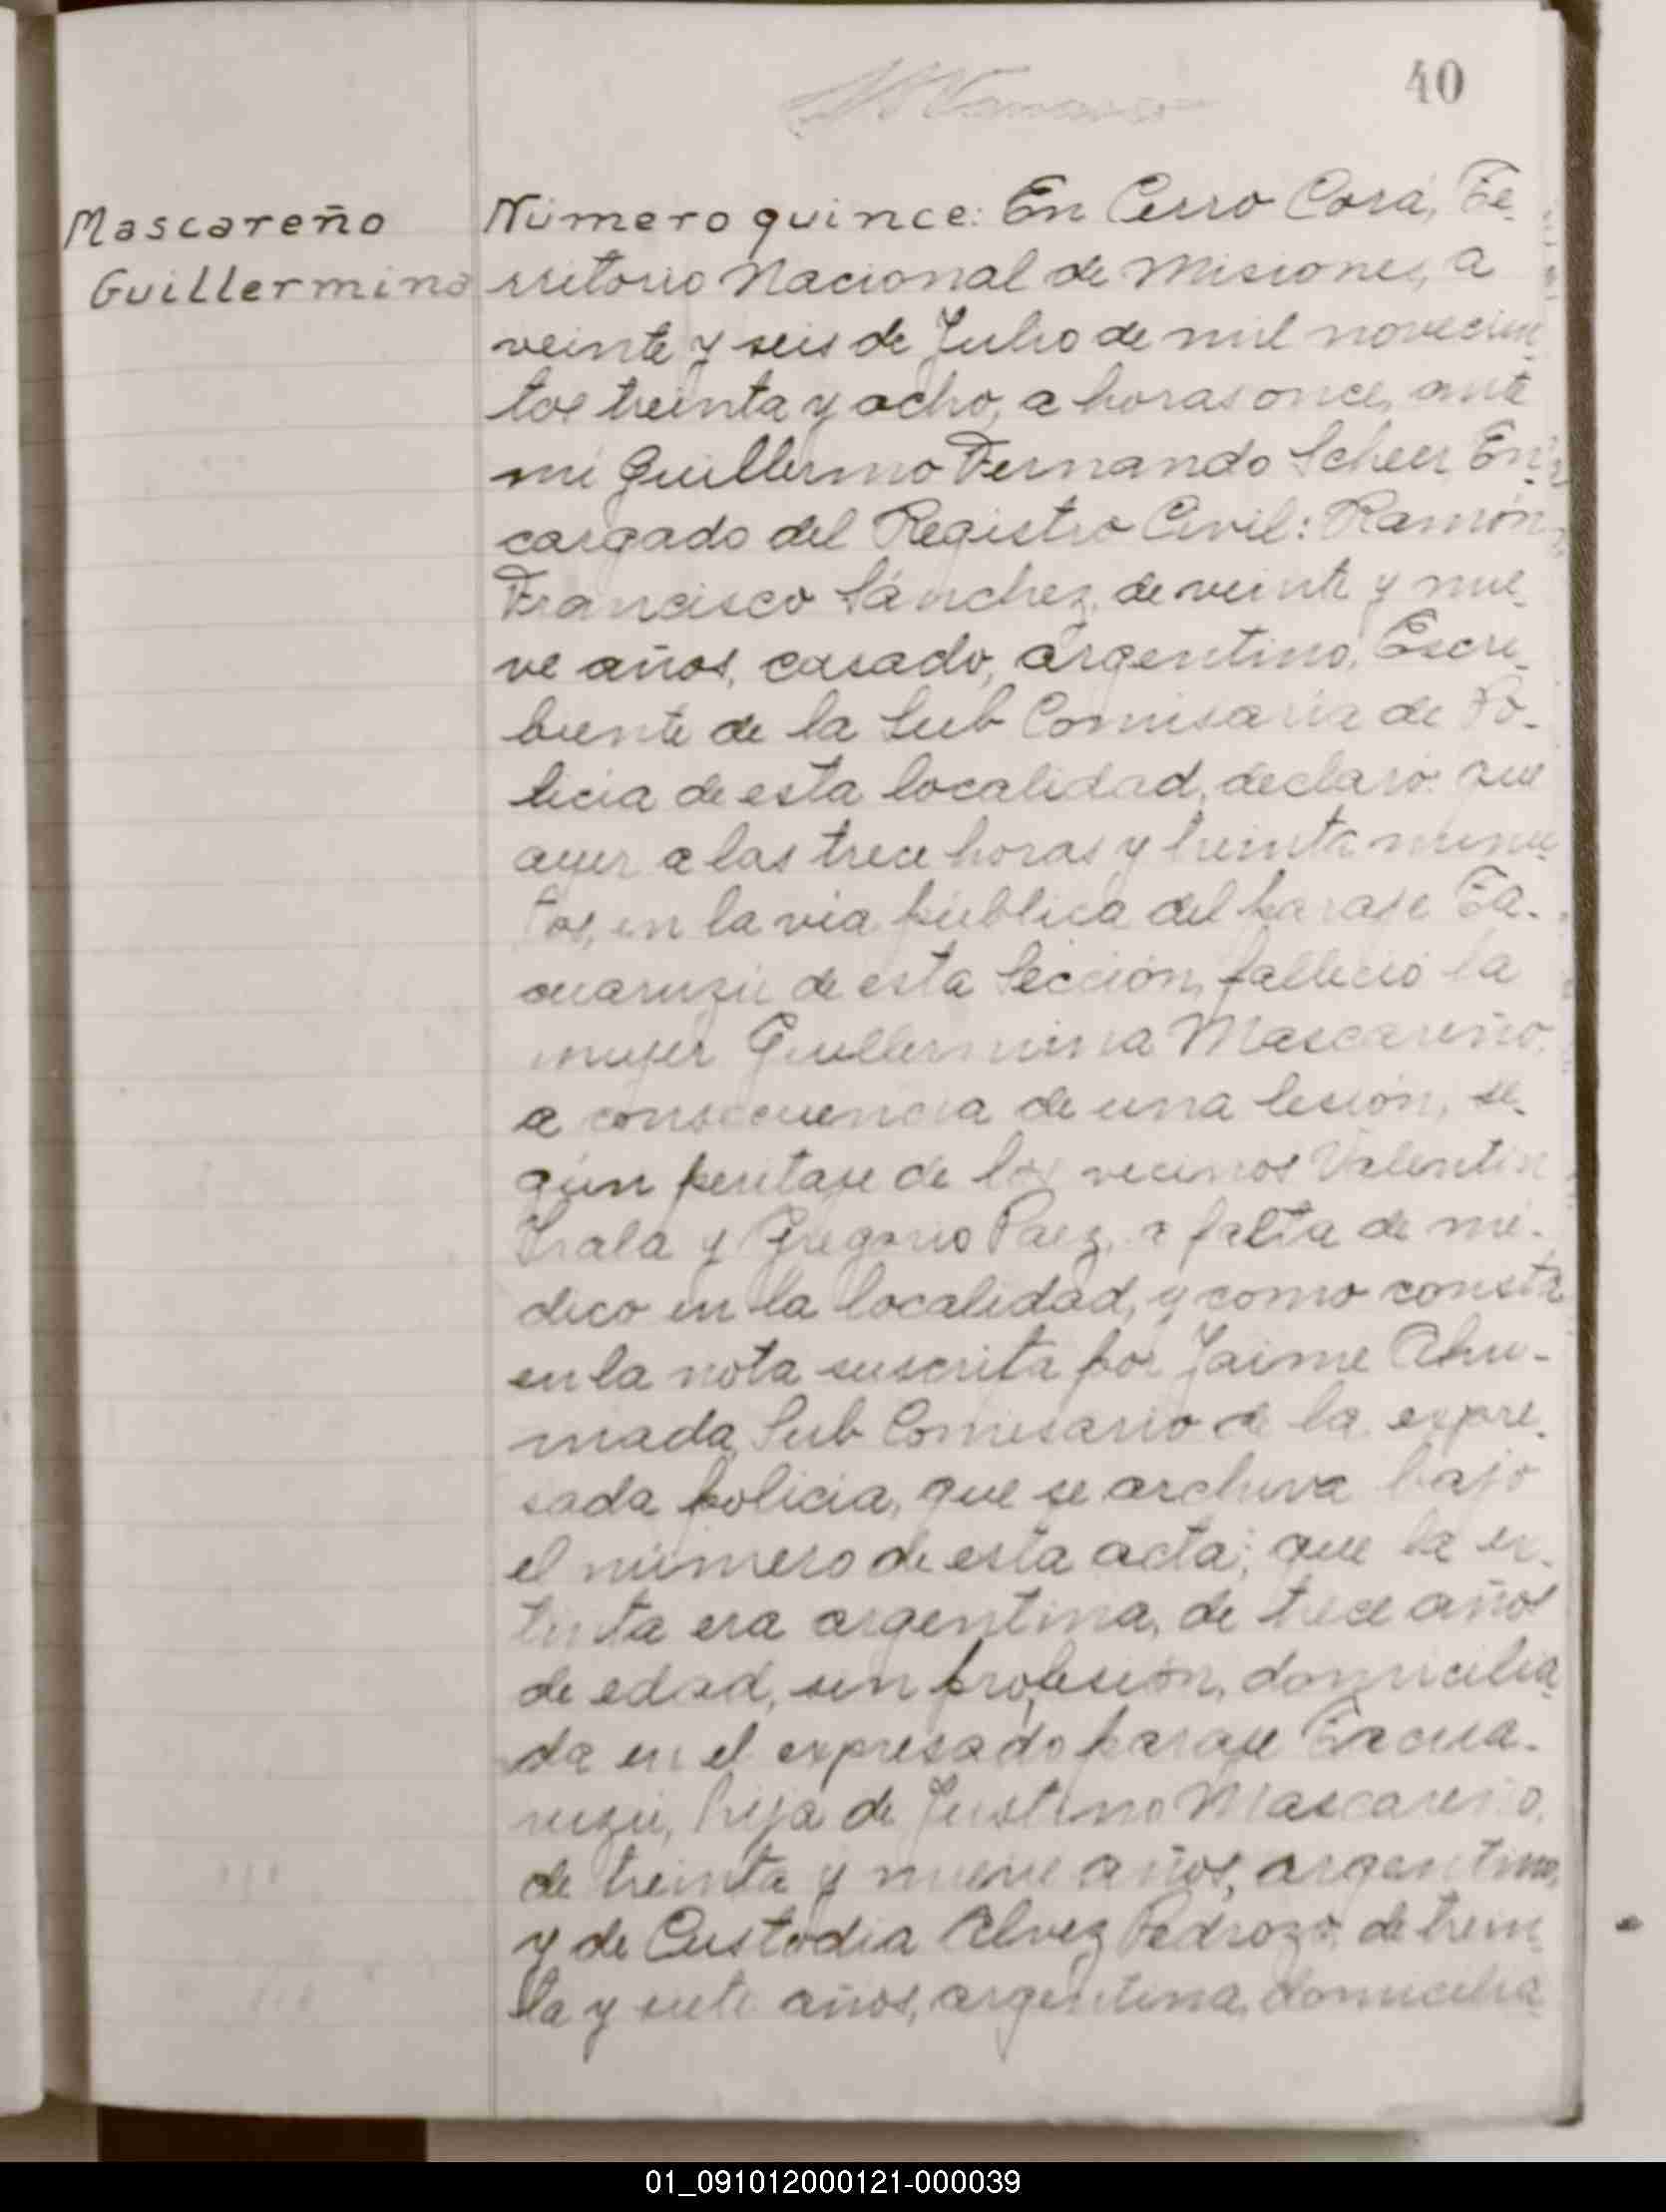 40
Mascareño
Guillermina
Número quince: En Cerro Corá, Te-
rritorio Nacional de Misiones, a
veinte y seis de Julio de mil novecien-
tos treinta y ocho, a horas once, ante
mi Guillermo Fernando Scheer, En-
cargado del Registro Civil: Ramón
Francisco Sánchez, de veinte y nue-
ve años, casado, argentino, Escri-
biente de la Sub Comisaría de Po-
licia de esta localidad, declaró: que
ayer a las trece horas y treinta minu-
tos, en la via pública del paraje Ta-
cuaruzú de esta Sección, falleció la
mujer Guillermina Mascareño,
a consecuencia de una lesión, se-
gún peritaje de los vecinos Valentin
Irala y Gregorio Paez, a falta de mé-
dico en la localidad, y como consta
en la nota suscrita por Jaime Ahu-
mada, Sub Comisario de la expre-
sada policia, que se archiva bajo
el número de esta acta; que la ex-
tinta era argentina, de trece años
de edad, sin profesión, domicilia-
da en el expresado paraje Tacua-
ruzú, hija de Justino Mascareño,
de treinta y nueve años, argentino,
y de Custodia Alvez Pedrozo, de trein-
ta y siete años, argentina, domicilia
01_091012000121-000039